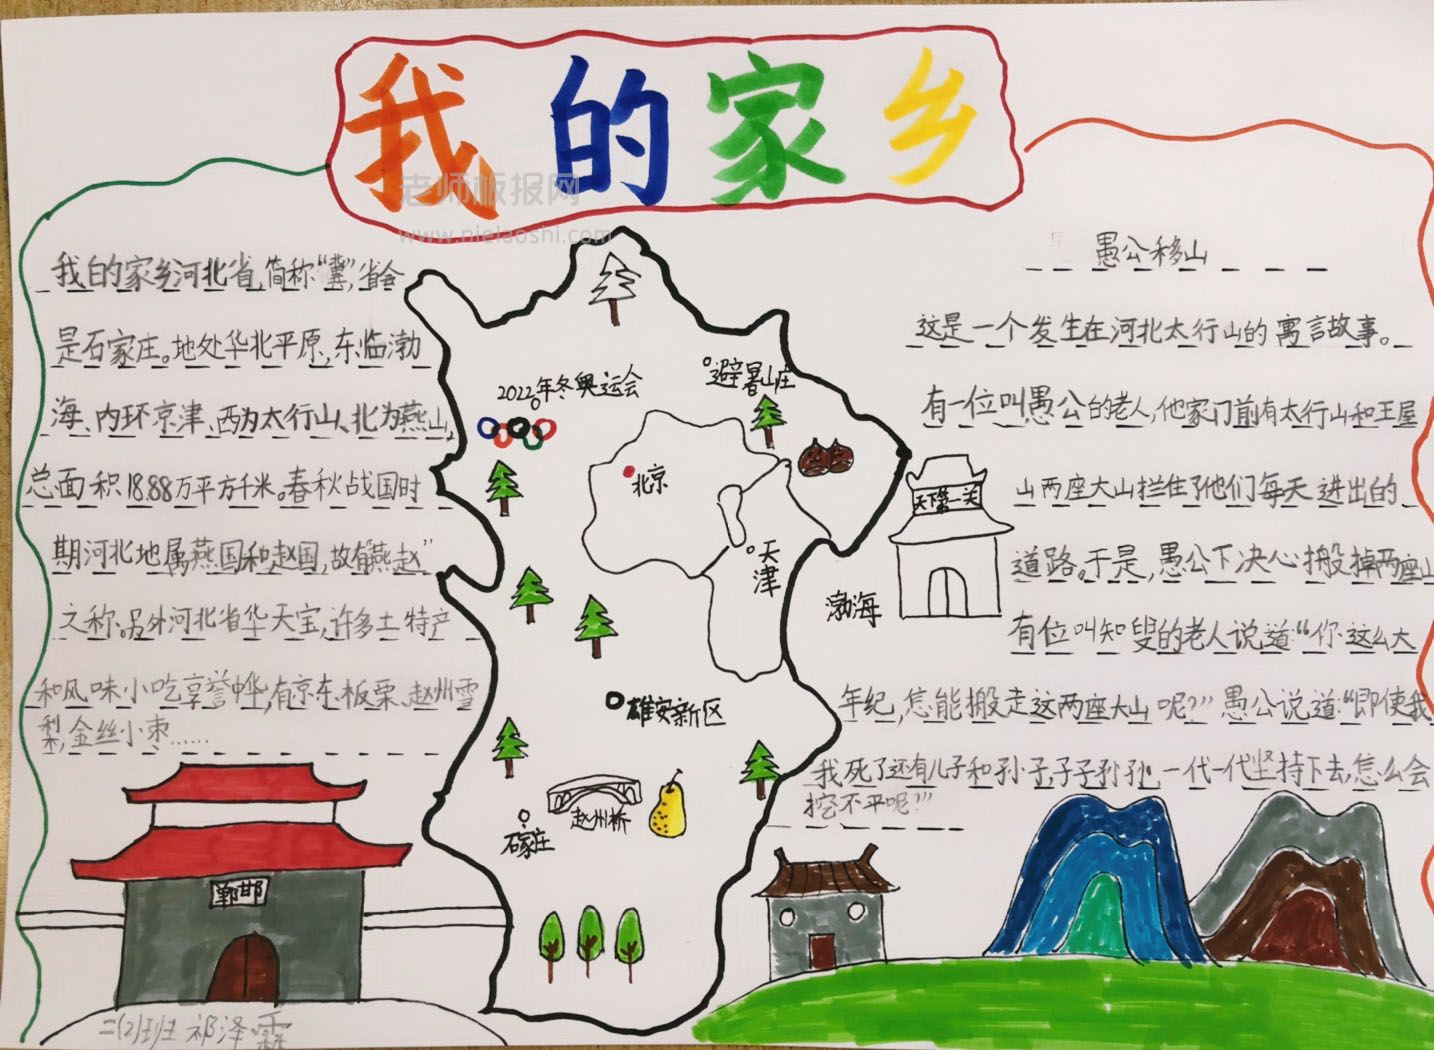 我的家乡
老师板报网
www.nielaoshi.com
我的家乡河北省,简称“冀”,省会
是石家庄。地处华北平原,东临渤
海、内环京津、西为太行山、北为燕山,
总面积18.88万平方千米。春秋战国时
期河北地属燕国和赵国,故有“燕赵”
之称。另外河北省华天宝,许多土特产
和风味小吃享誉中华,有京东板栗、赵州雪
梨,金丝小枣……
2022年冬奥运会
避暑山庄
北京
天津
渤海
天下第一关
雄安新区
赵州桥
石家庄
邯郸
二(2)班 祁泽霖
愚公移山
这是一个发生在河北太行山的寓言故事。
有一位叫愚公的老人,他家门前有太行山和王屋
山两座大山拦住了他们每天进出的
道路。于是,愚公下决心搬掉两座山
有位叫知叟的老人说道:“你这么大
年纪,怎能搬走这两座大山呢?”愚公说道:“即使我
我死了还有儿子和孙子子子孙孙,一代一代坚持下去,怎么会
挖不平呢?”